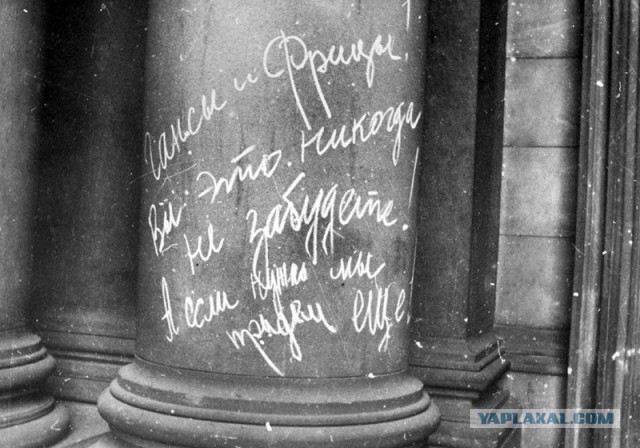 Гансы и Фрицы!
Вы это никогда
не забудете!
А если нужно мы
придем еще!
YAPLAKAL.COM